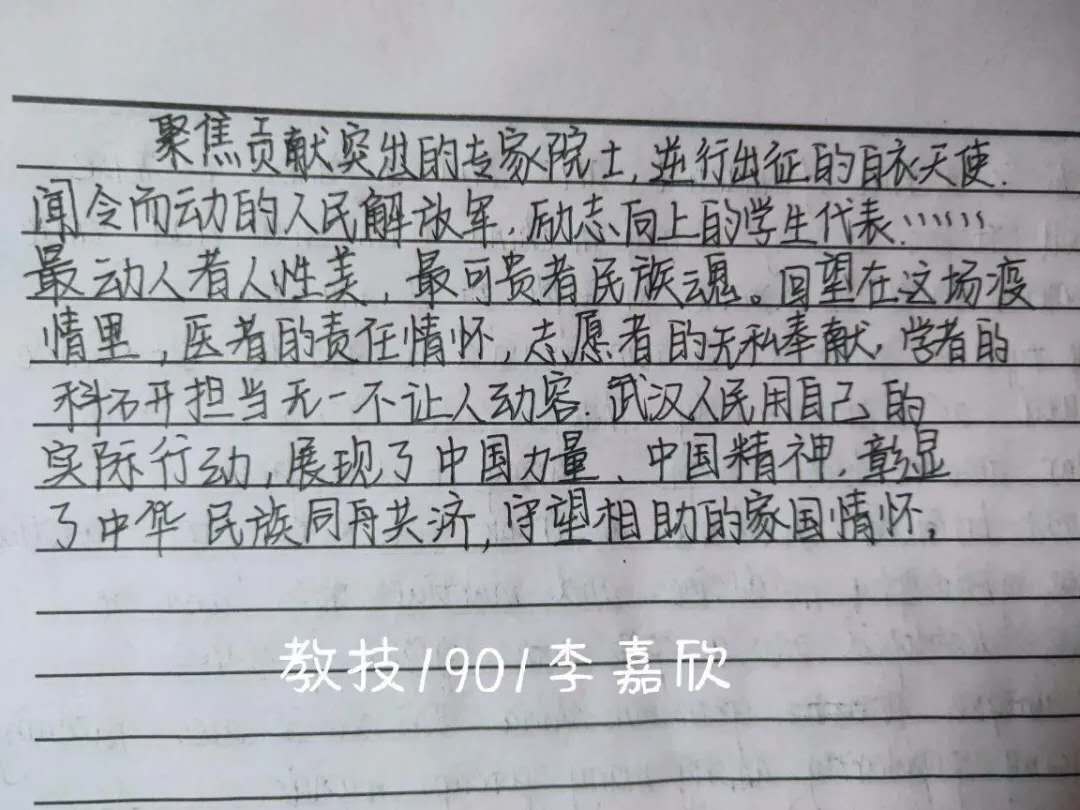 聚焦贡献突出的专家院士,逆行出征的白衣天使.
闻令而动的人民解放军.励志向上的学生代表……
最动人者人性美,最可贵者民族魂。回望在这场疫
情里,医者的责任情怀,志愿者的无私奉献,学者的
科研担当无一不让人动容.武汉人民用自己的
实际行动,展现了中国力量、中国精神,彰显
了中华民族同舟共济,守望相助的家国情怀,
教技1901李嘉欣